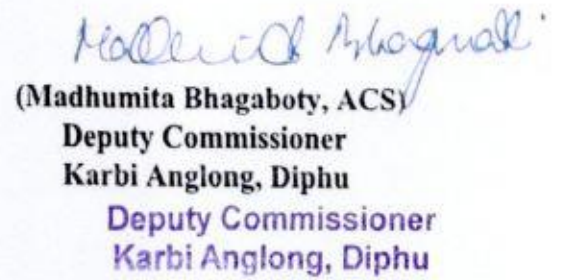 (Madhumita Bhagaboty, ACS)
Deputy Commissioner
Karbi Anglong, Diphu
Deputy Commissioner
Karbi Anglong, Diphu